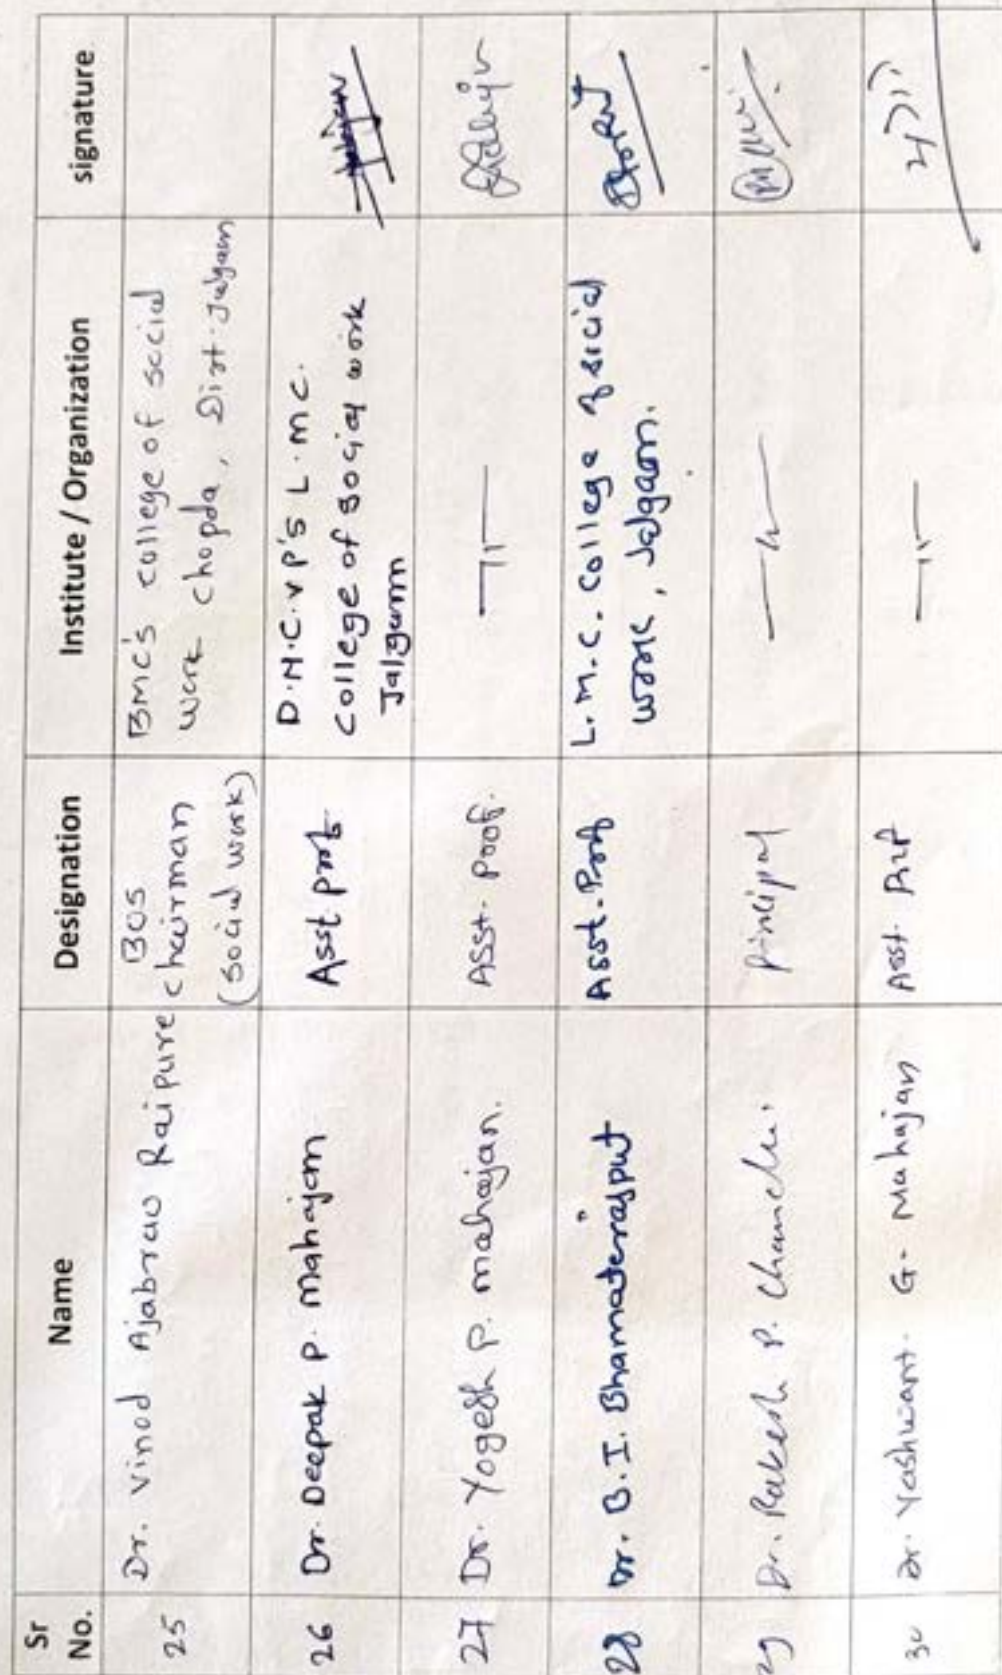 Sr No. Name Designation Institute / Organization signature
25 Dr. Vinod Ajabrao Raipure BOS BMC's college of social
chairman work chopda, Dist. Jalgaon
(social work)
26 Dr. Deepak P. Mahajan Asst prof D.N.C.VP's L.M.C.
college of social work
Jalgaon
27 Dr. Yogesh P. Mahajan. Asst. Prof. —11—
28 Dr. B. I. Bhamaterajput Asst. Prof L.M.C. College of social
work, Jalgaon.
29 Dr. Rakesh P. —11—
30 Dr. Yashwant. G. Mahajan Asst. —11—